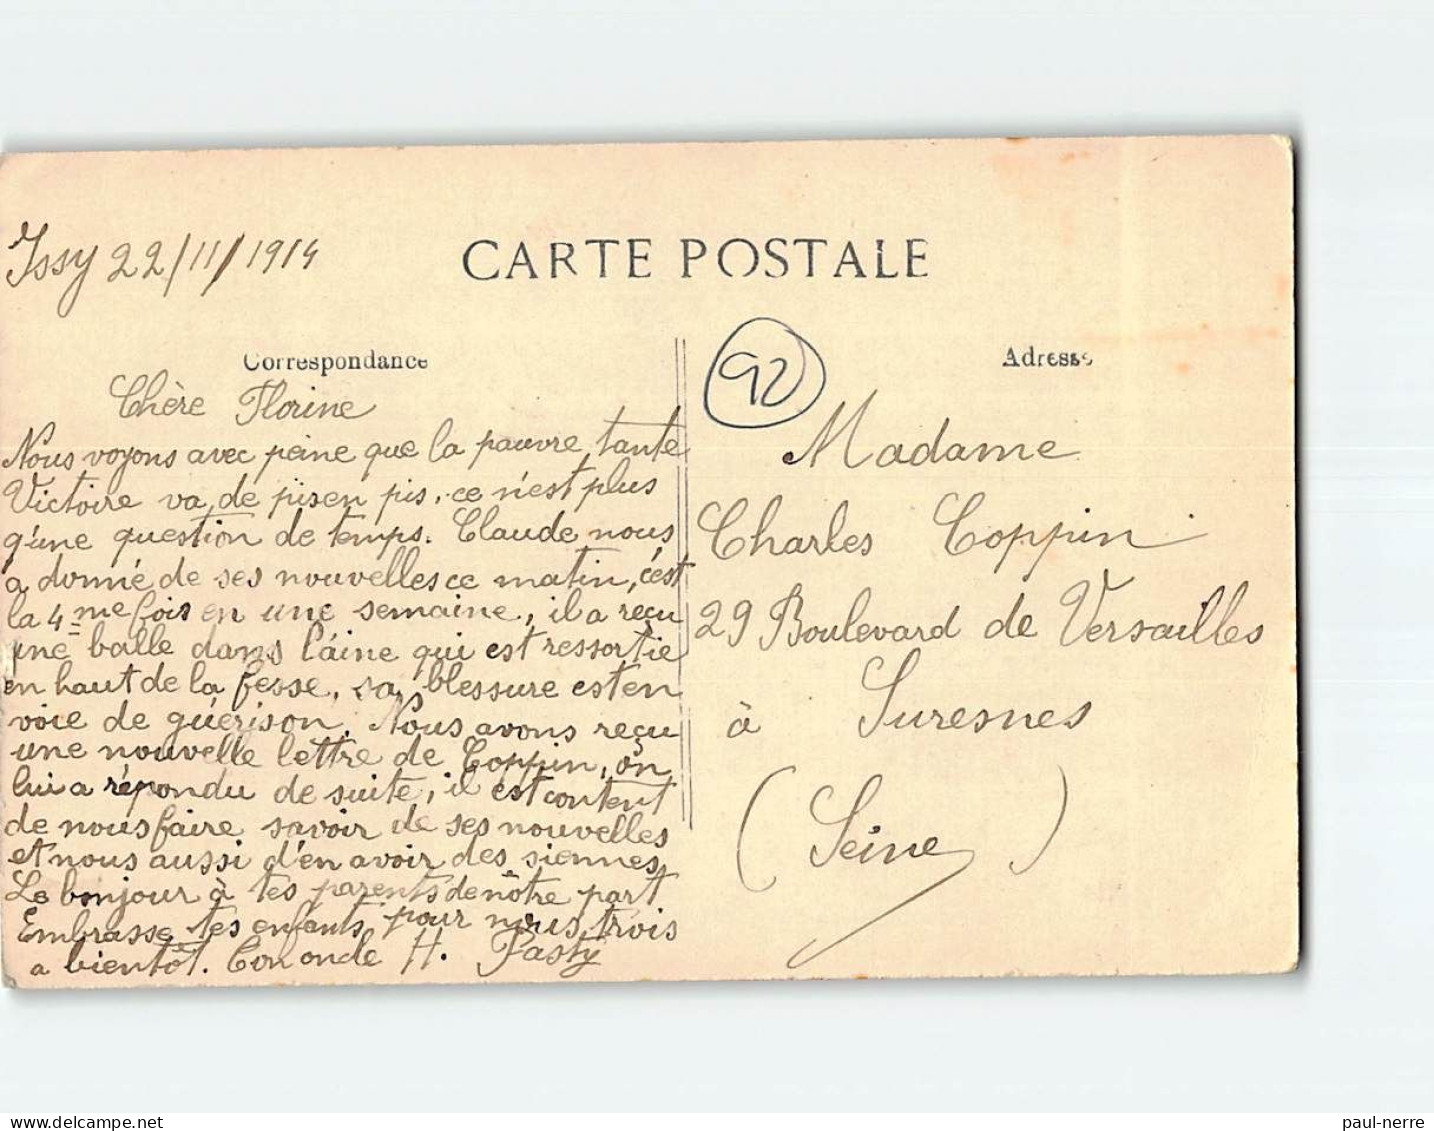 Issy 22/11/1914
CARTE POSTALE
Correspondance
Chère Florine
Nous voyons avec peine que la pauvre tante
Victoire va de pis en pis, ce n'est plus
q'une question de temps. Claude nous
a donné de ses nouvelles ce matin, c'est
la 4me fois en une semaine, il a reçu
une balle dans l'áine qui est ressortie
en haut de la fesse, sa blessure est en
voie de guérison. Nous avons reçu
une nouvelle lettre de Coppin, on
lui a répondu de suite, il est content
de nous faire savoir de ses nouvelles
et nous aussi d'en avoir des siennes,
Le bonjour à tes parents de nôtre part
Embrasse tes enfants pour nous trois
a bientôt. Ton oncle H. Pasty
92
Adresse
Madame
Charles Coppin
29 Boulevard de Versailles
à Suresnes
(Seine)
delcampe.net
paul-nerre